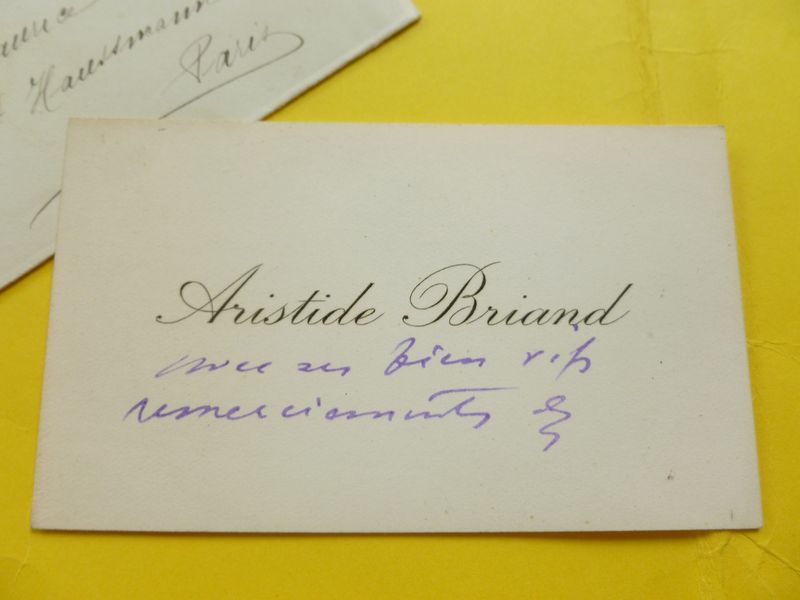 Haussmann
Paris
Aristide Briand
avec ses bien vifs
remerciements